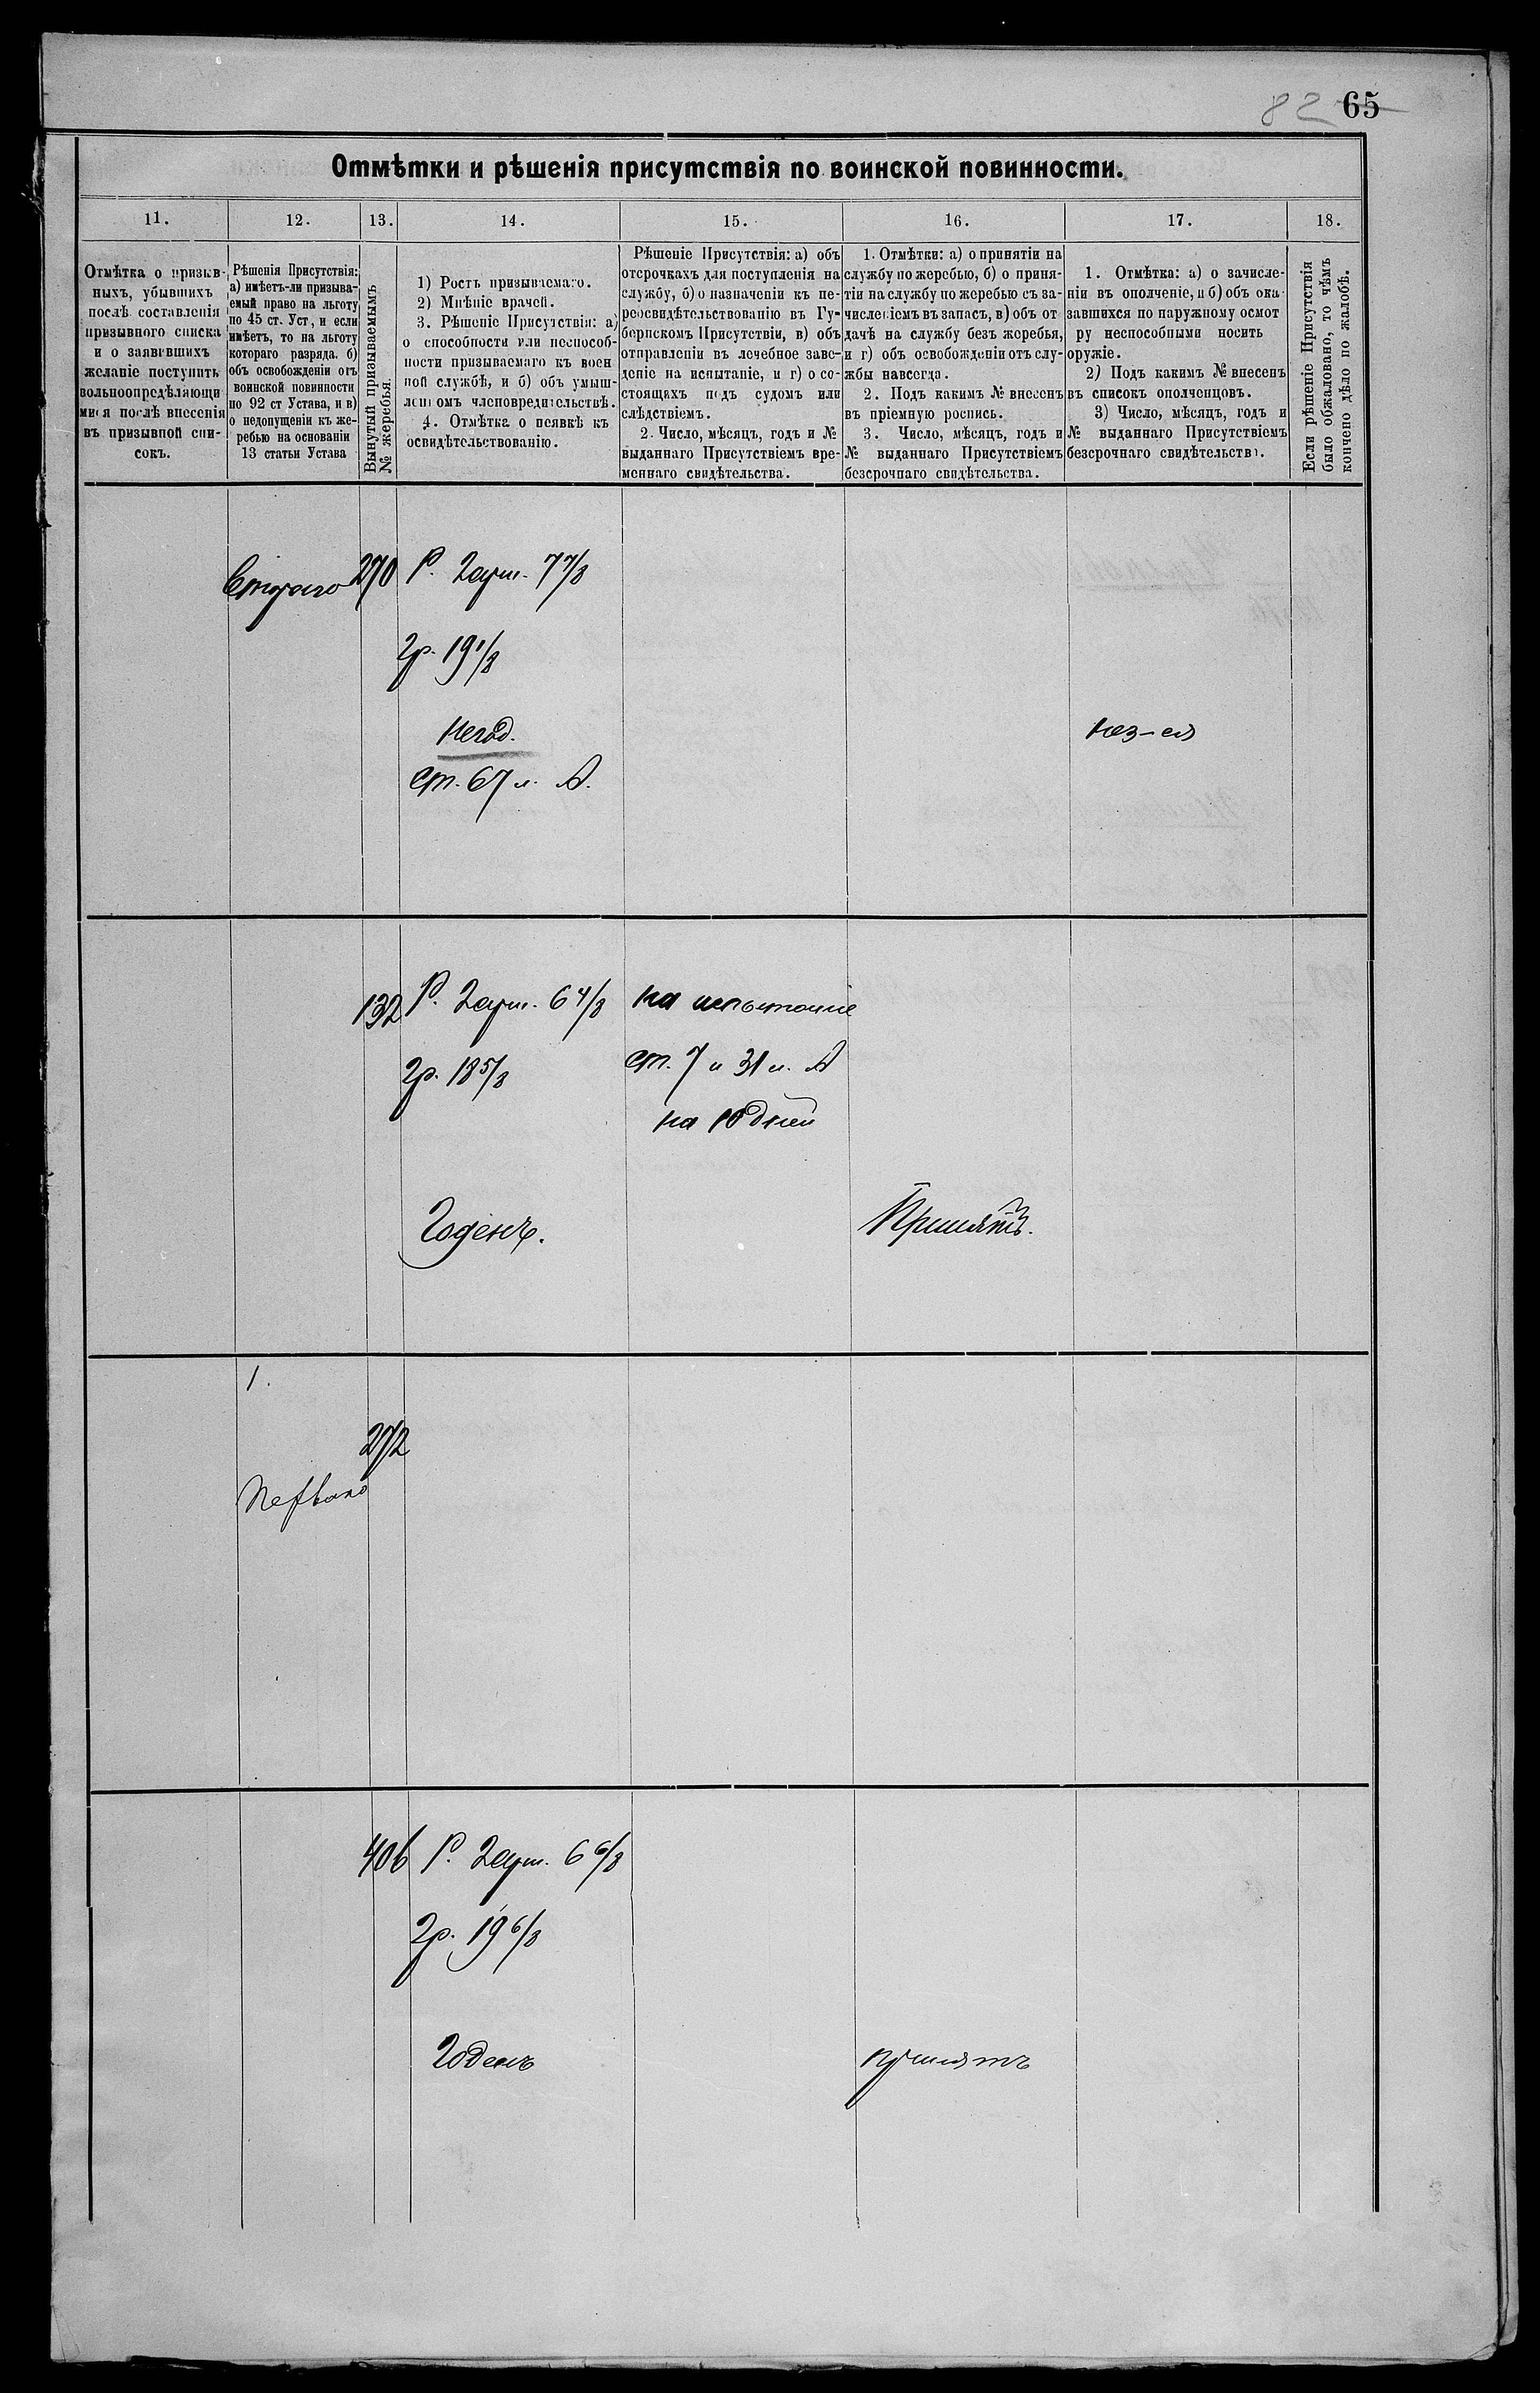 82 65
Отмѣтки и рѣшенія присутствія по воинской повинности.
11. 12. 13. 14. 15. 16. 17. 18.
Отмѣтка о призыв-
ныхъ, убывшихъ
послѣ составленія
призывного списка
и о заявившихъ
желаніе поступить
вольноопредѣляющи
мися послѣ внесенія
въ призывной спи-
сокъ.
Рѣшенія Присутствія:
а) имѣетъ-ли призыва-
емый право на льготу
по 45 ст. Уст, и если
имѣетъ, то на льготу
котораго разряда. б)
объ освобожденіи отъ
воинской повинности
по 92 ст Устава, и в)
о недопущеніи къ же-
ребью на основаніи
13 статьи Устава
Вынутый призываемымъ
№ жеребья.
1) Ростъ призываемаго.
2) Мнѣніе врачей.
3. Рѣшеніе Присутствія: а)
о способности или неспособ-
ности призываемаго къ воен
ной службѣ, и б) объ умыш-
ленномъ членовредительствѣ.
4. Отмѣтка о неявкѣ къ
освидѣтельствованію.
Рѣшеніе Присутствія: а) объ
отсрочкахъ для поступленія на
службу, б) о назначеніи къ пе-
реосвидѣтельствованію въ Гу-
бернскомъ Присутствіи, в) объ
отправленіи въ лечебное заве-
деніе на испытаніе, и г) о со-
стоящихъ подъ судомъ или
слѣдствіемъ.
2. Число, мѣсяцъ, годъ и №
выданнаго Присутствіемъ вре-
меннаго свидѣтельства.
1. Отмѣтки: а) о принятіи на
службу по жеребью, б) о приня-
тіи на службу по жеребью съ за-
численіемъ въ запасъ, в) объ от
дачѣ на службу безъ жеребья,
и г) объ освобожденіи отъ слу-
жбы навсегда.
2. Подъ какимъ № внесенъ
въ пріемную роспись.
3. Число, мѣсяцъ, годъ и
№ выданнаго Присутствіемъ
безсрочнаго свидѣтельства.
1. Отмѣтка: а) о зачисле-
ніи въ ополченіе, и б) объ ока-
завшихся по наружному осмот
ру неспособными носить
оружіе.
2) Подъ какимъ № внесенъ
въ списокъ ополченцовъ.
3) Число, мѣсяцъ, годъ и
№ выданнаго Присутствіемъ
безсрочнаго свидѣтельства.
Если рѣшеніе Присутствія
было обжаловано, то чѣмъ
кончено дѣло по жалобѣ.
Втораго 270 Р. 2 арш. 7 7/8
гр. 19 1/8
негод.
ст. 67 л. А.
132 Р. 2 арш. 6 4/8 на испытаніе
гр. 18 5/8 ст. 7 и 31 л. А
на 10 дней
Годенъ. Принятъ.
1.
272
Перваго
406 Р. 2 арш. 6 6/8
гр. 19 6/8
Годенъ принятъ